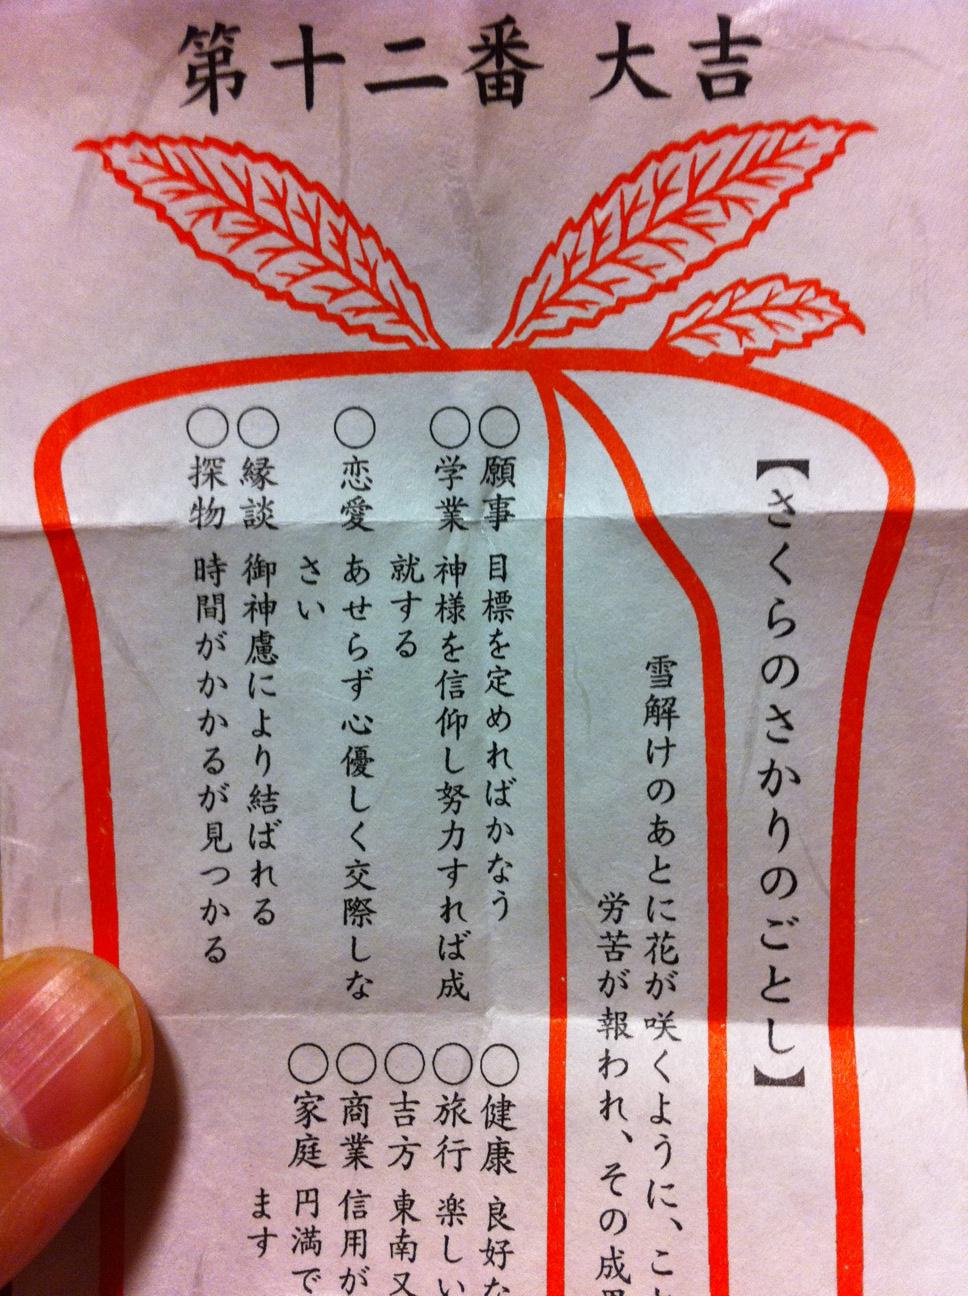 第十二番 大吉
【さくらのさかりのごとし】
雪解けのあとに花が咲くように、こ
労苦が報われ、その成
○願事 目標を定めればかなう
○学業 神様を信仰し努力すれば成
就する
○恋愛 あせらず心優しく交際しな
さい
○縁談 御神慮により結ばれる
○探物 時間がかかるが見つかる
○健康 良好な
○旅行 楽しい
○吉方 東南又
○商業 信用が
○家庭 円満で
ます